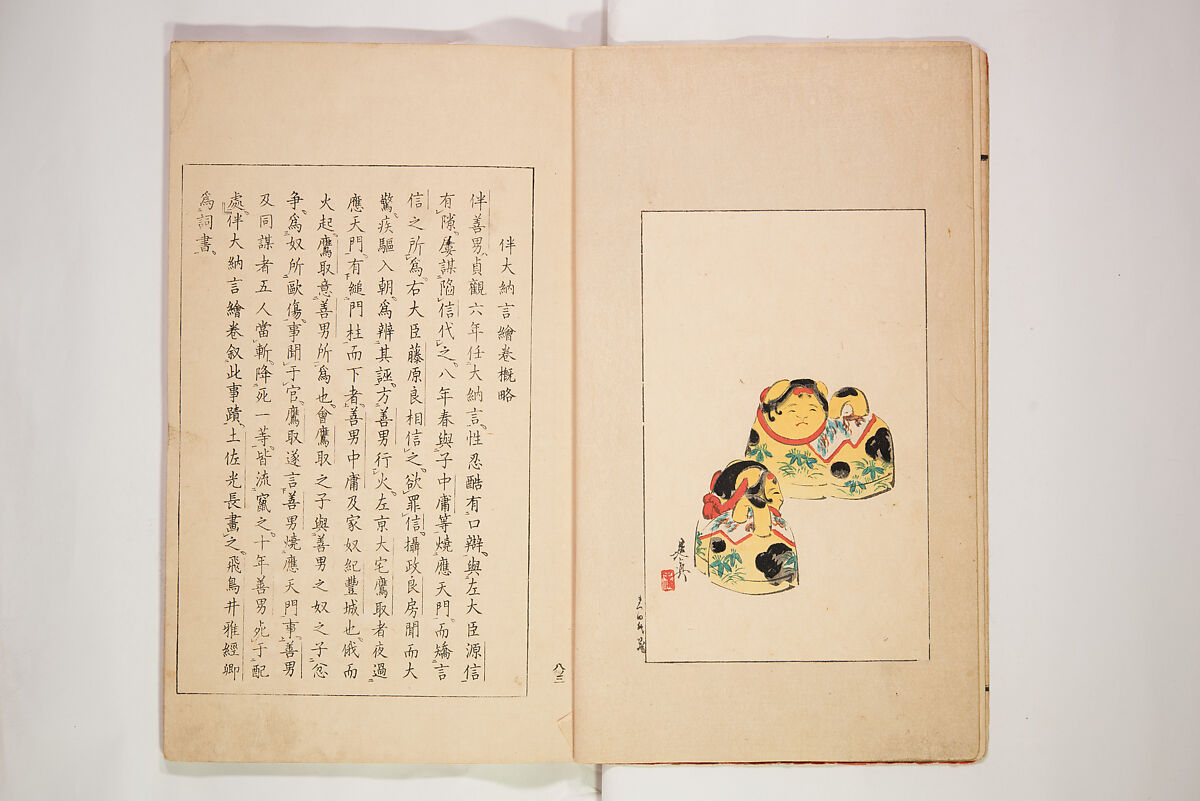 伴大納言繪卷概略
伴善男貞觀六年任大納言性忍酷有口辯與左大臣源信
有隙屢謀陷信代之八年春與子中庸等燒應天門而矯言
信之所爲右大臣藤原良相信之欲罪信攝政良房聞而大
驚疾驅入朝爲辨其誣方善男行火左京大宅鷹取者夜過
應天門有縋門柱而下者善男中庸及家奴紀豐城也俄而
火起鷹取意善男所爲也會鷹取之子與善男之奴之子忿
争爲奴所歐傷事聞于官鷹取遂言善男燒應天門事善男
及同謀者五人當斬降死一等皆流竄之十年善男死于配
處伴大納言繪卷叙此事蹟土佐光長畫之飛鳥井雅經卿
爲詞書
八三